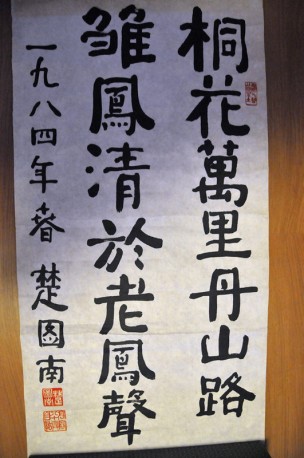 桐花萬里丹山路
雛鳳清於老鳳聲
一九八四年春 楚图南